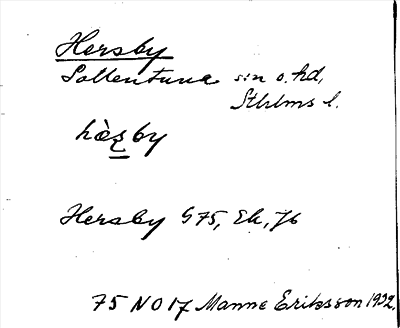 Hersby
Sollentuna sn o. hd,
Sthlms l.
hæ̀ʂby
Hersby G75, Ek, Jk
75 NO 17 Manne Eriksson 1932.